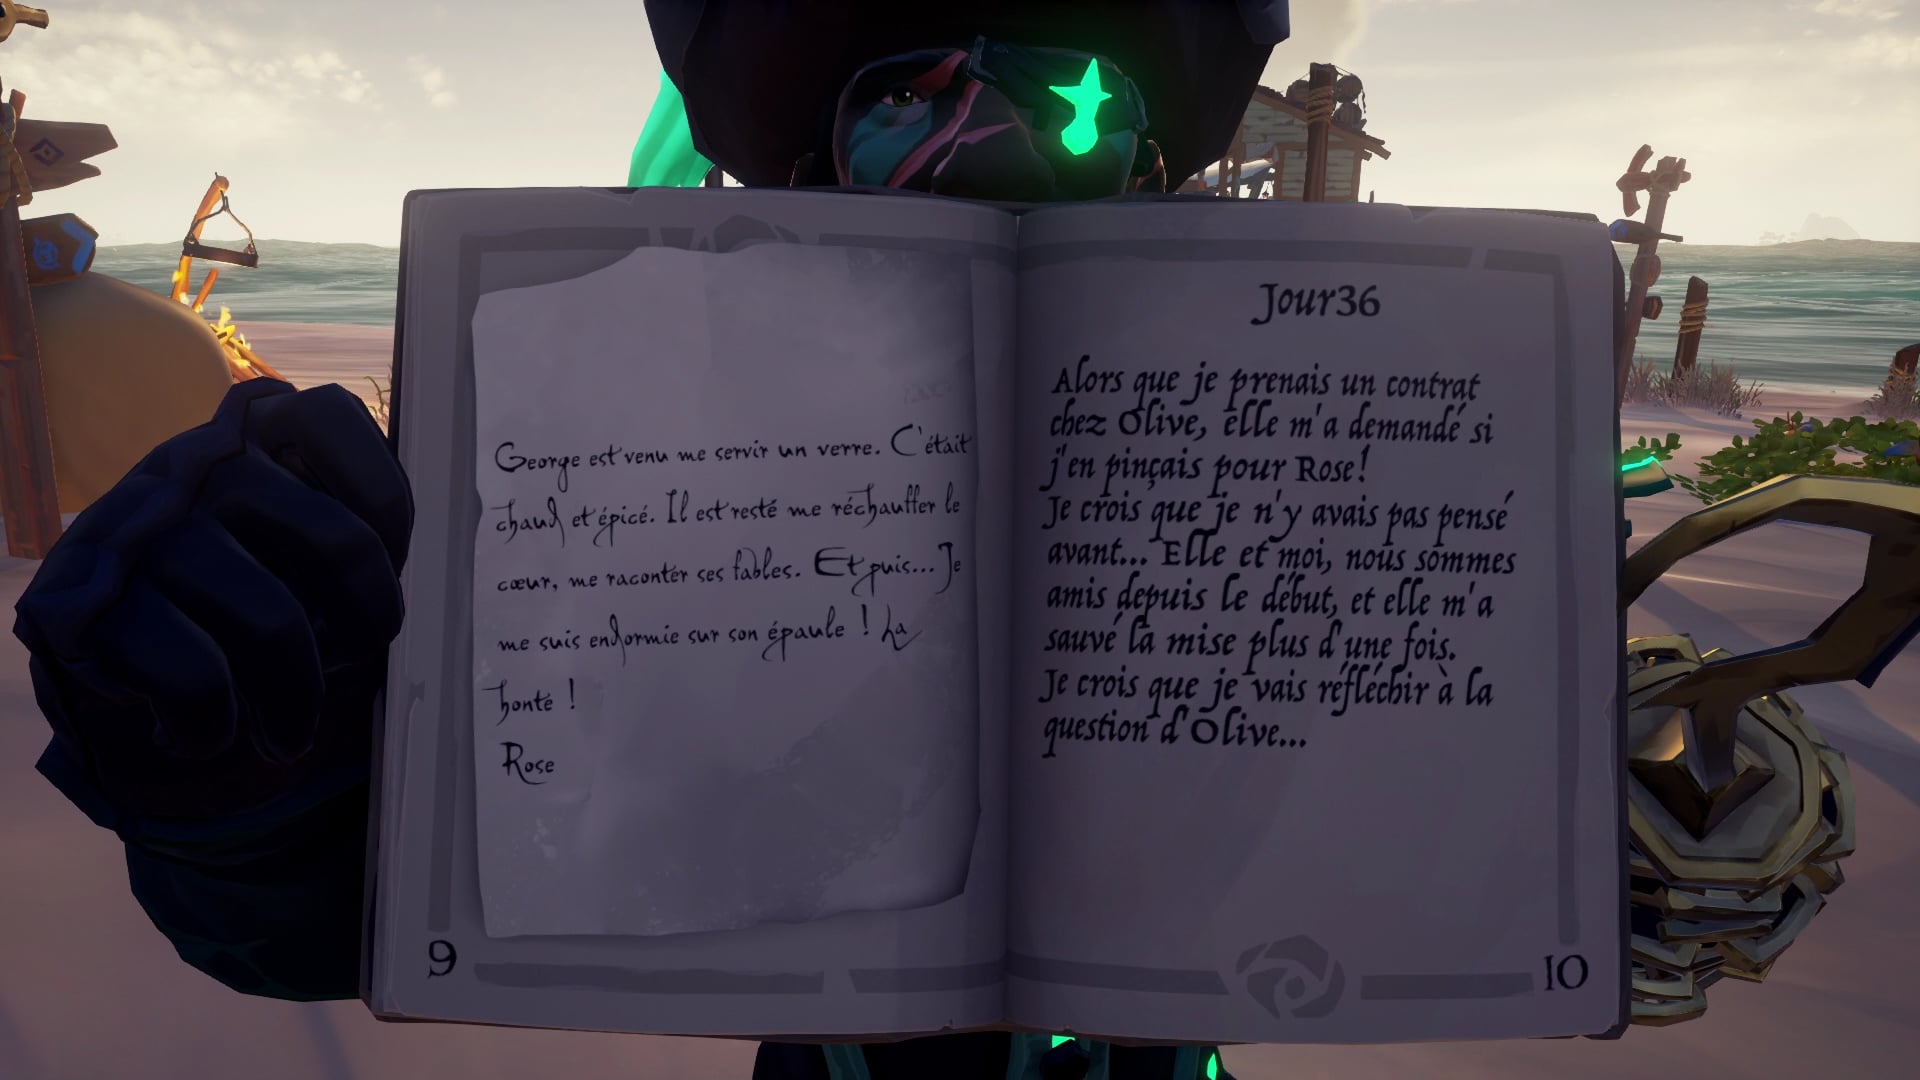 George est venu me servir un verre. C'était
chaud et épicé. Il est resté me réchauffer le
cœur, me raconter ses fables. Et puis... Je
me suis endormie sur son épaule ! La
honte !
Rose
9
Jour36
Alors que je prenais un contrat
chez Olive, elle m'a demandé si
j'en pinçais pour Rose!
Je crois que je n'y avais pas pensé
avant... Elle et moi, nous sommes
amis depuis le début, et elle m'a
sauvé la mise plus d'une fois.
Je crois que je vais réfléchir à la
question d'Olive...
10